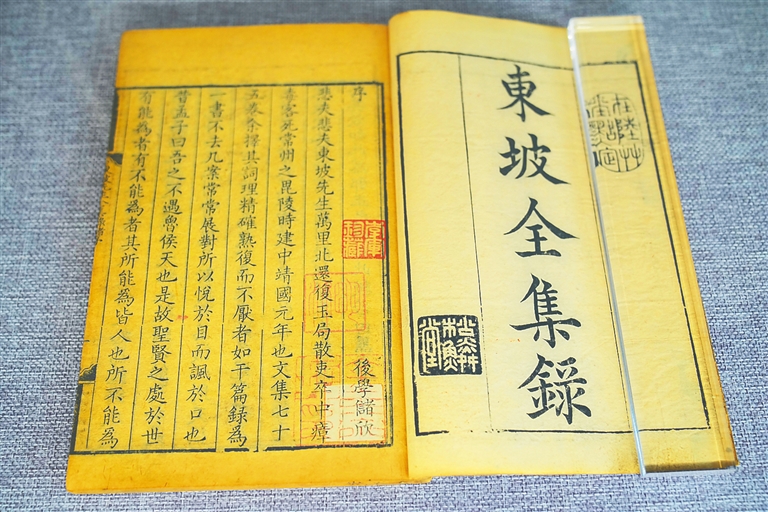 東坡全集錄
序
後學儲欣
悲夫悲夫東坡先生萬里北還復玉局散吏卒中瘴
毒客死常州之毘陵時建中靖國元年也文集七十
五卷余擇其詞理精確熟復而不厭者如干篇錄為
一書不去几案常常展對所以悅於目而諷於口也
昔孟子曰吾之不遇魯侯天也是故聖賢之處於世
有能為者有不能為者其所能為皆人也所不能為